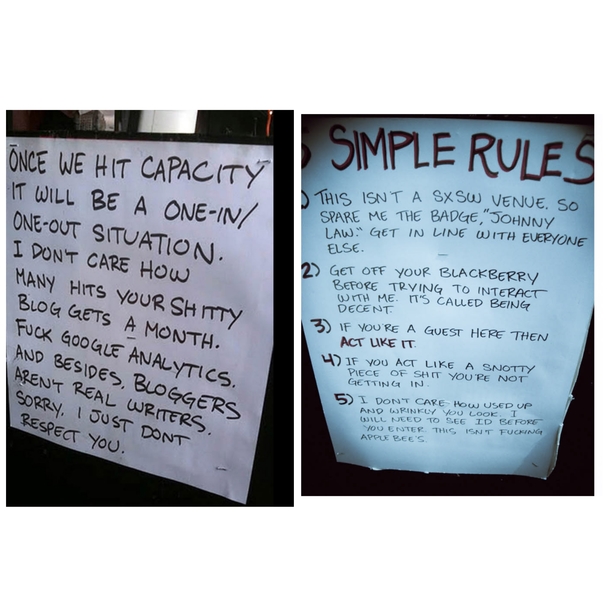 ONCE WE HIT CAPACITY
IT WILL BE A ONE-IN/
ONE-OUT SITUATION.
I DON'T CARE HOW
MANY HITS YOUR SHITTY
BLOG GETS A MONTH.
FUCK GOOGLE ANALYTICS.
AND BESIDES, BLOGGERS
AREN'T REAL WRITERS.
SORRY, I JUST DONT
RESPECT YOU.
SIMPLE RULES
THIS ISN'T A SXSW VENUE. SO
SPARE ME THE BADGE, "JOHNNY
LAW." GET IN LINE WITH EVERYONE
ELSE.
2) GET OFF YOUR BLACKBERRY
BEFORE TRYING TO INTERACT
WITH ME. IT'S CALLED BEING
DECENT.
3) IF YOU'RE A GUEST HERE THEN
ACT LIKE IT.
4) IF YOU ACT LIKE A SNOTTY
PIECE OF SHIT YOU'RE NOT
GETTING IN.
5) I DON'T CARE HOW USED UP
AND WRINKLY YOU LOOK. I
WILL NEED TO SEE ID BEFORE
YOU ENTER THIS ISN'T FUCKING
APPLEBEE'S.